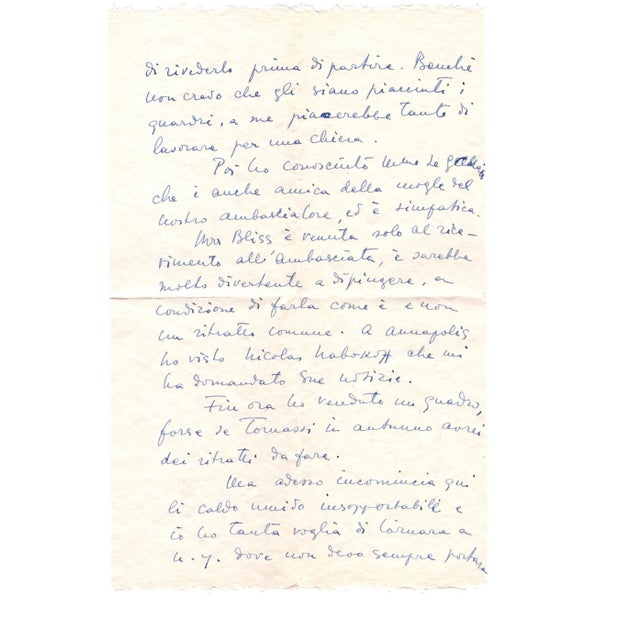 di rivederlo prima di partire. Benchè
non credo che gli siano piaciuti i
quardri, a me piacerebbe tanto di
lavorare per una chiesa.
Poi ho conosciuto Mme de
che è anche amica della mogle del
nostro ambasciatore, ed è simpatica.
Mrs Bliss è venuta solo al rice-
vimento all'Ambasciata, è sarebbe
molto divertente a dipingere, a
condizione di farla come è e non
un ritratto comune. A Annapolis
ho visto Nicolas Nabokoff che mi
ha domandato sue notizie.
Fin ora ho venduto un quadro,
forse se tornassi in autunno avrei
dei ritratti da fare.
Ma adesso incomincia qui
il caldo umido insopportabile e
io ho tanta voglia di tornare a
N.Y. dove non devo sempre portare